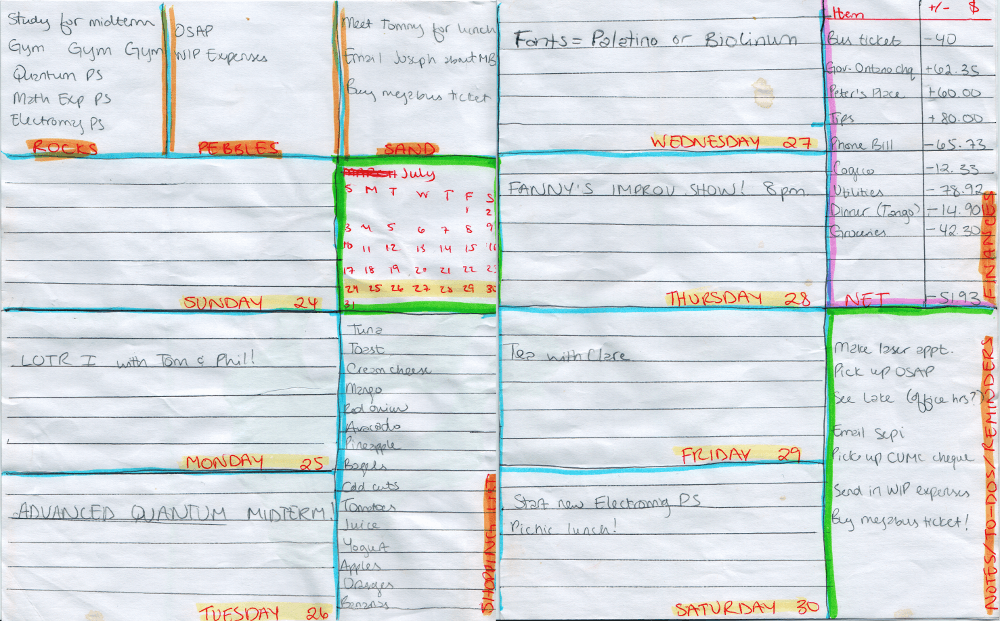 Study for midterm
Gym Gym Gym
Quantum PS
Math Exp PS
Electromag PS
ROCKS
OSAP
WIP Expenses
PEBBLES
Meet Tommy for lunch
Email Joseph about MB
Buy megabus ticket
SAND
SUNDAY 24
MARCH July
S M T W T F S
1 2
3 4 5 6 7 8 9
10 11 12 13 14 15 16
17 18 19 20 21 22 23
24 25 26 27 28 29 30
31
LOTR I with Tom & Phil!
MONDAY 25
ADVANCED QUANTUM MIDTERM!
TUESDAY 26
Tuna
Toast
Cream cheese
Mango
Red onion
Avocado
Pineapple
Bagels
Cold cuts
Tomatoes
Juice
Yogurt
Apples
Oranges
Bananas
SHOPPING LIST
Fonts = Palatino or Biolinum
WEDNESDAY 27
FANNY'S IMPROV SHOW! 8pm
THURSDAY 28
Tea with Mare
FRIDAY 29
Start new Electromag PS
Picnic lunch!
SATURDAY 30
Item +/- $
Bus tickets -40
Gov. Ontario chq +62.35
Peter's Place +60.00
Tips +80.00
Phone Bill -65.73
Cogeco -12.33
Utilities -78.92
Dinner (Tango) -14.90
Groceries -42.30
NET -51.93
FINANCES
Make laser appt.
Pick up OSAP
See Lake (office hrs?)
Email Sepi
Pick up CUMC cheque
Send in WIP expenses
Buy megabus ticket!
NOTES/TO-DOS/REMINDERS